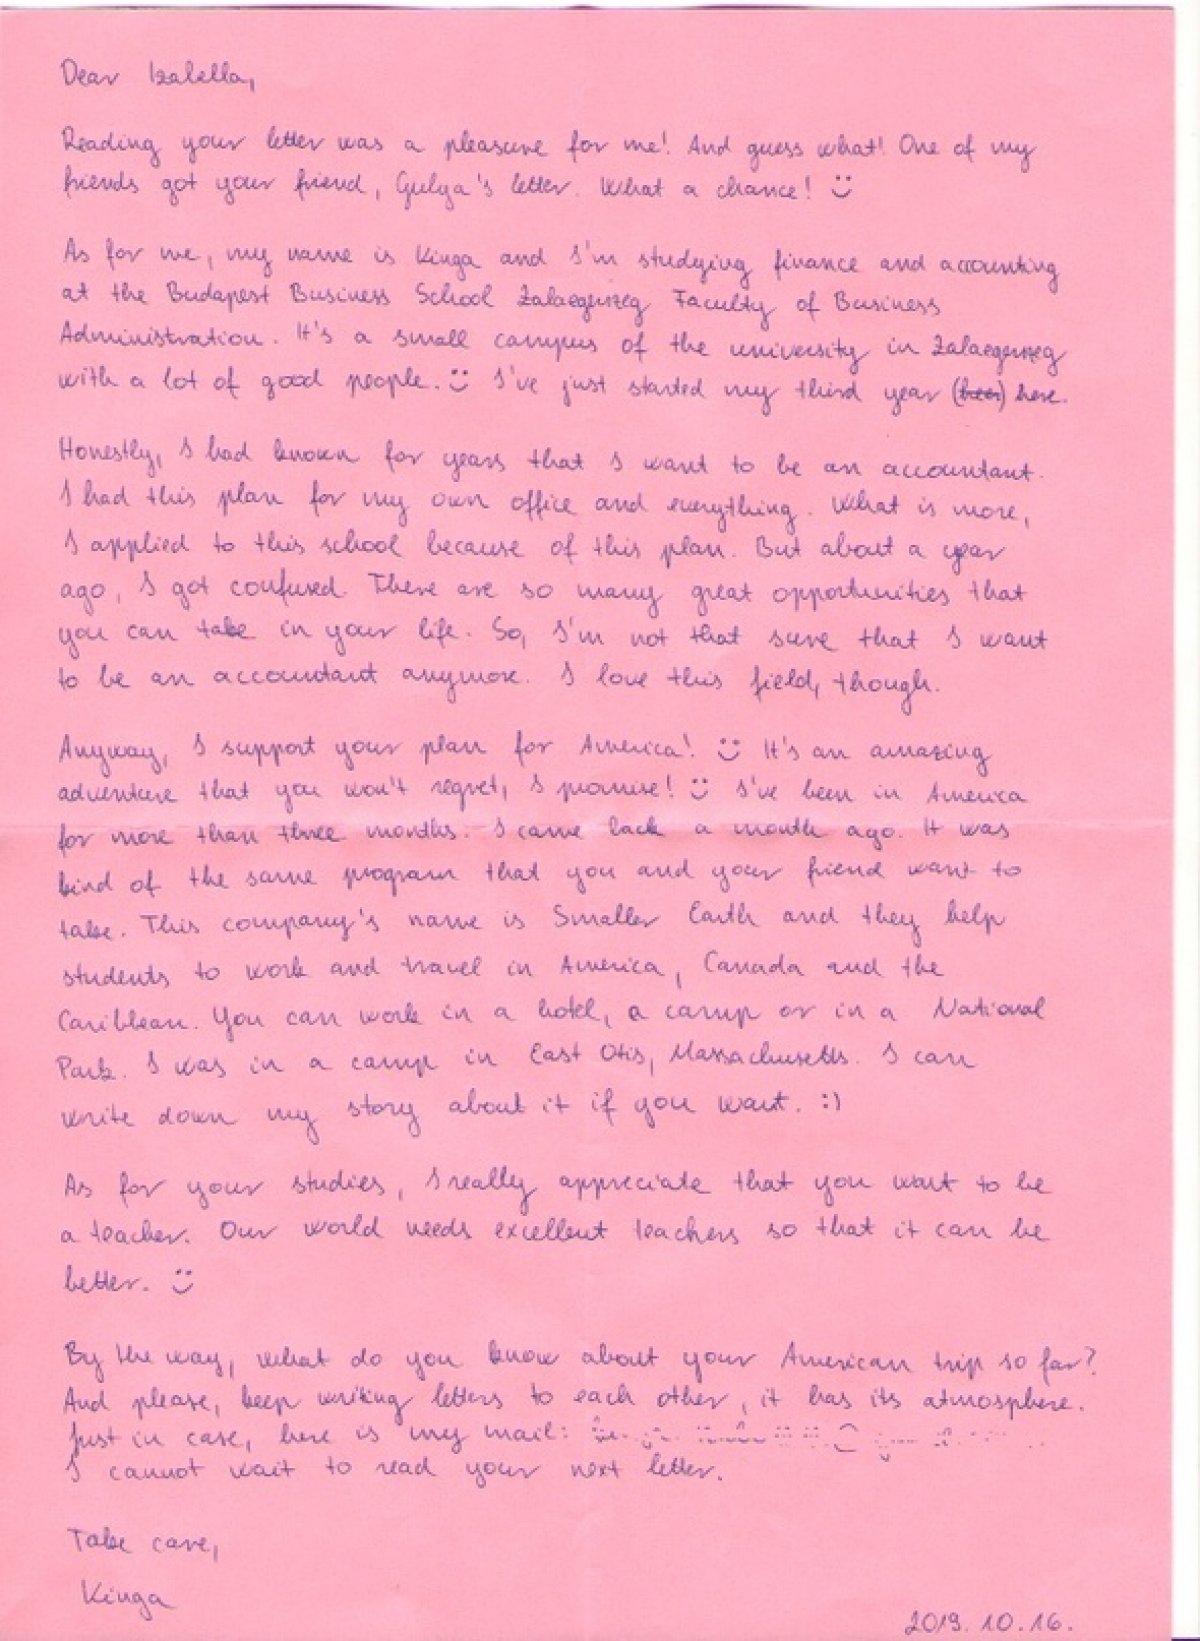 Dear Izabella,
Reading your letter was a pleasure for me! And guess what! One of my
friends got your friend, Gulya's letter. What a chance! :)
As for me, my name is Kinga and I'm studying finance and accounting
at the Budapest Business School Zalaegerszeg Faculty of Business
Administration. It's a small campus of the university in Zalaegerszeg
with a lot of good people. :) I've just started my third year here.
Honestly, I had known for years that I want to be an accountant.
I had this plan for my own office and everything. What is more,
I applied to this school because of this plan. But about a year
ago, I got confused. There are so many great opportunities that
you can take in your life. So, I'm not that sure that I want
to be an accountant anymore. I love this field, though.
Anyway, I support your plan for America! :) It's an amazing
adventure that you won't regret, I promise! :) I've been in America
for more than three months. I came back a month ago. It was
kind of the same program that you and your friend want to
take. This company's name is Smaller Earth and they help
students to work and travel in America, Canada and the
Caribbean. You can work in a hotel, a camp or in a National
Park. I was in a camp in East Otis, Massachusetts. I can
write down my story about it if you want. :)
As for your studies, I really appreciate that you want to be
a teacher. Our world needs excellent teachers so that it can be
better. :)
By the way, what do you know about your American trip so far?
And please, keep writing letters to each other, it has its atmosphere.
Just in case, here is my mail:
I cannot wait to read your next letter.
Take care,
Kinga
2019. 10. 16.